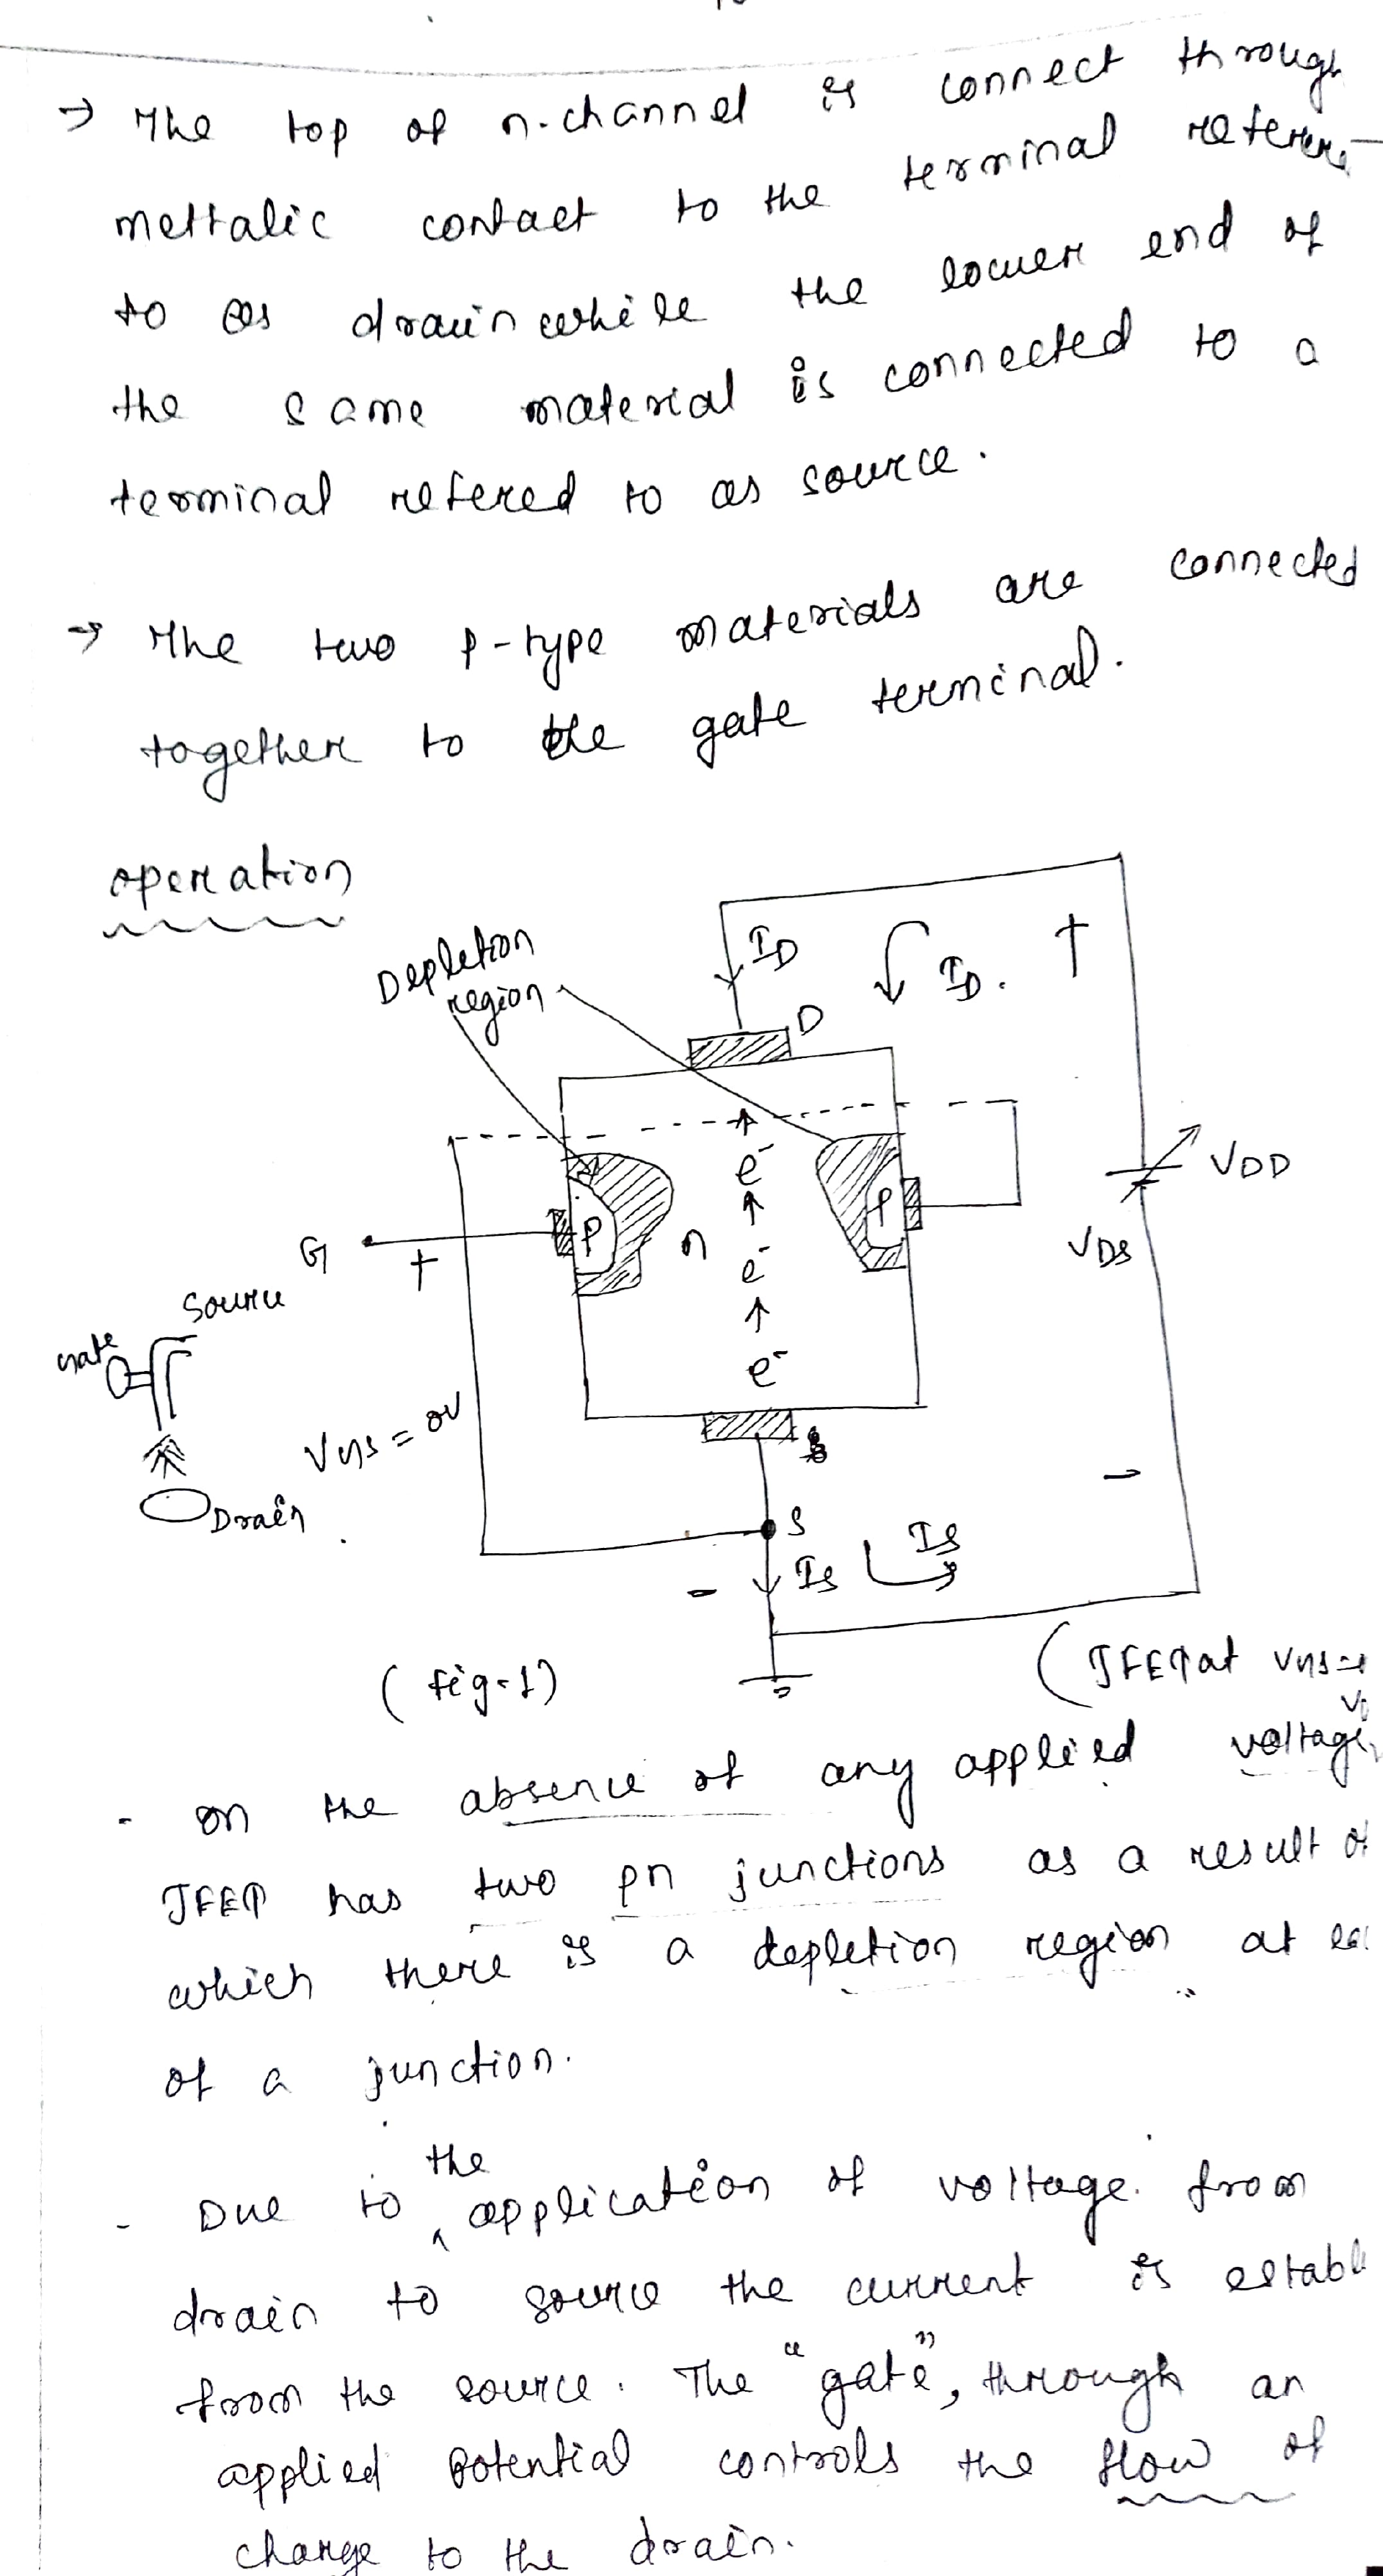 → The top of n-channel is connect through
mettalic contact to the terminal
to as drain while the lower end of
the same material is connected to a
terminal refered to as source.
→ The two p-type materials are connected
together to the gate terminal.
operation
Depletion
region
ID
ID.
+
D
e⁻
VDD
P
P
n
e⁻
G
+
VDS
Source
Gate
e⁻
VGS = 0V
Drain
-
S
IS
IS
-
(fig-1)
(JFET at VGS =
- on the absence of any applied voltage
JFET has two pn junctions as a result of
which there is a depletion region at
of a junction.
the
- Due to ^ application of voltage. from
drain to source the current is
from the source. The "gate", through an
applied potential controls the flow of
charge to the drain.